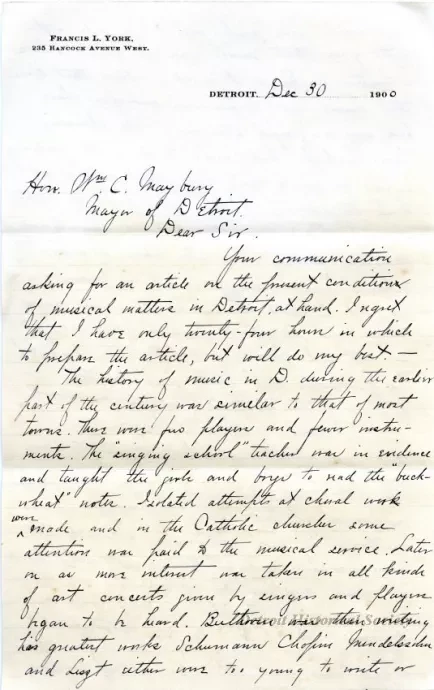 FRANCIS L. YORK,
235 HANCOCK AVENUE WEST.
DETROIT. Dec 30 1900
Hon. Wm C. Maybury
Mayor of Detroit.
Dear Sir.
Your communication
asking for an article on the present condition
of musical matters in Detroit, at hand. I regret
that I have only twenty-four hours in which
to prepare the article, but will do my best. —
The history of music in D. during the earlier
part of the century was similar to that of most
towns. There were few players and fewer instru-
ments. The "singing school" teacher was in evidence
and taught the girls and boys to read the "buck-
wheat" notes. Isolated attempts at choral work
were made and in the Catholic churches some
attention was paid to the musical service. Later
on as more interest was taken in all kinds
of art concerts given by singers and players
began to be heard. Beethoven was then writing
his greatest works Schumann Chopin Mendelssohn
and Liszt either were too young to write or
Detroit Historical Society